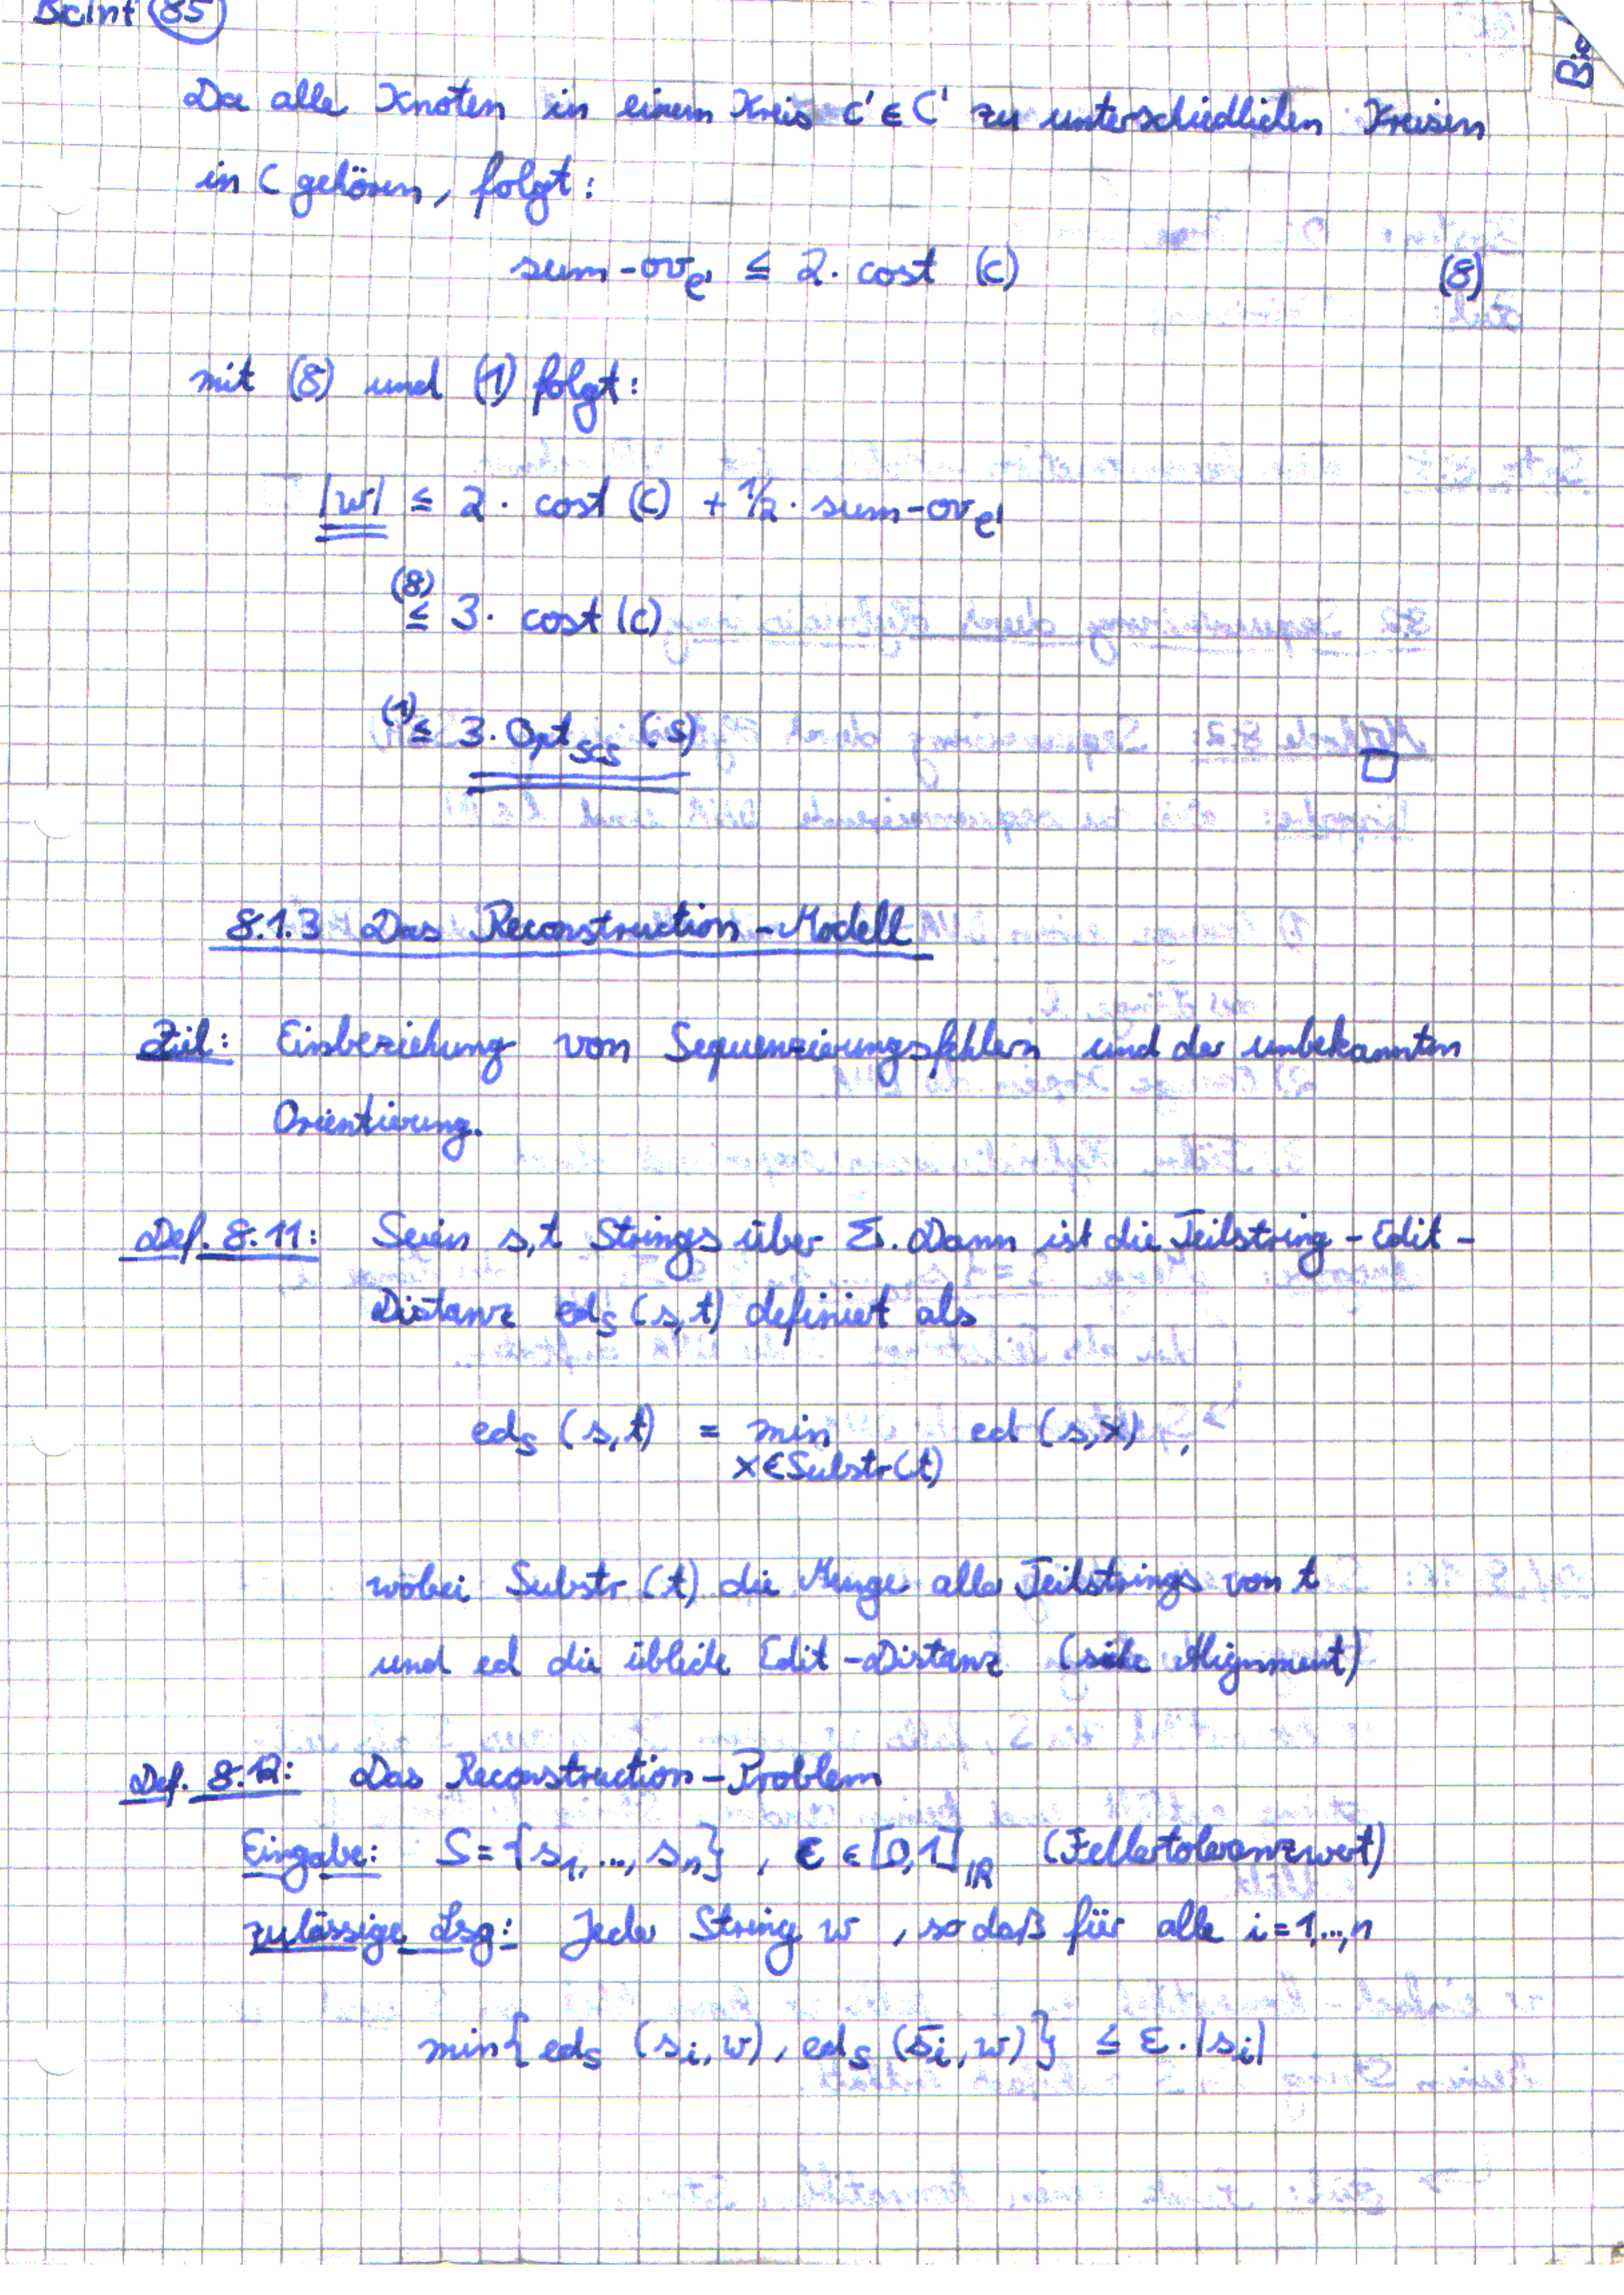 BcInf 85
Bio
Da alle Knoten in einem Kreis c' ∈ C' zu unterschiedlichen Kreisen
in C gehören, folgt:
sum-ov_C' ≤ 2 · cost (C) (8)
mit (8) und (1) folgt:
|w| ≤ 2 · cost (C) + 1/2 · sum-ov_C'
(8) ≤ 3 · cost (C)
(1) ≤ 3 · Opt_SCS (S)
8.1.3 Das Reconstruction-Modell
Ziel: Einbeziehung von Sequenzierungsfehlern und der unbekannten
Orientierung.
Def. 8.11: Seien s,t Strings über Σ. Dann ist die Teilstring-Edit-
Distanz ed_S (s,t) definiert als
ed_S (s,t) = min ed (s,x) ,
x∈Substr(t)
wobei Substr (t) die Menge aller Teilstrings von t
und ed die übliche Edit-Distanz (siehe Alignment)
Def. 8.12: Das Reconstruction-Problem
Eingabe: S = {s_1, ..., s_n} , ε ∈ [0,1]_ℝ (Fehlertoleranzwert)
zulässige Lsg: Jeder String w , so daß für alle i=1,...,n
min{ed_S (s_i, w), ed_S (s̄_i, w)} ≤ ε · |s_i|